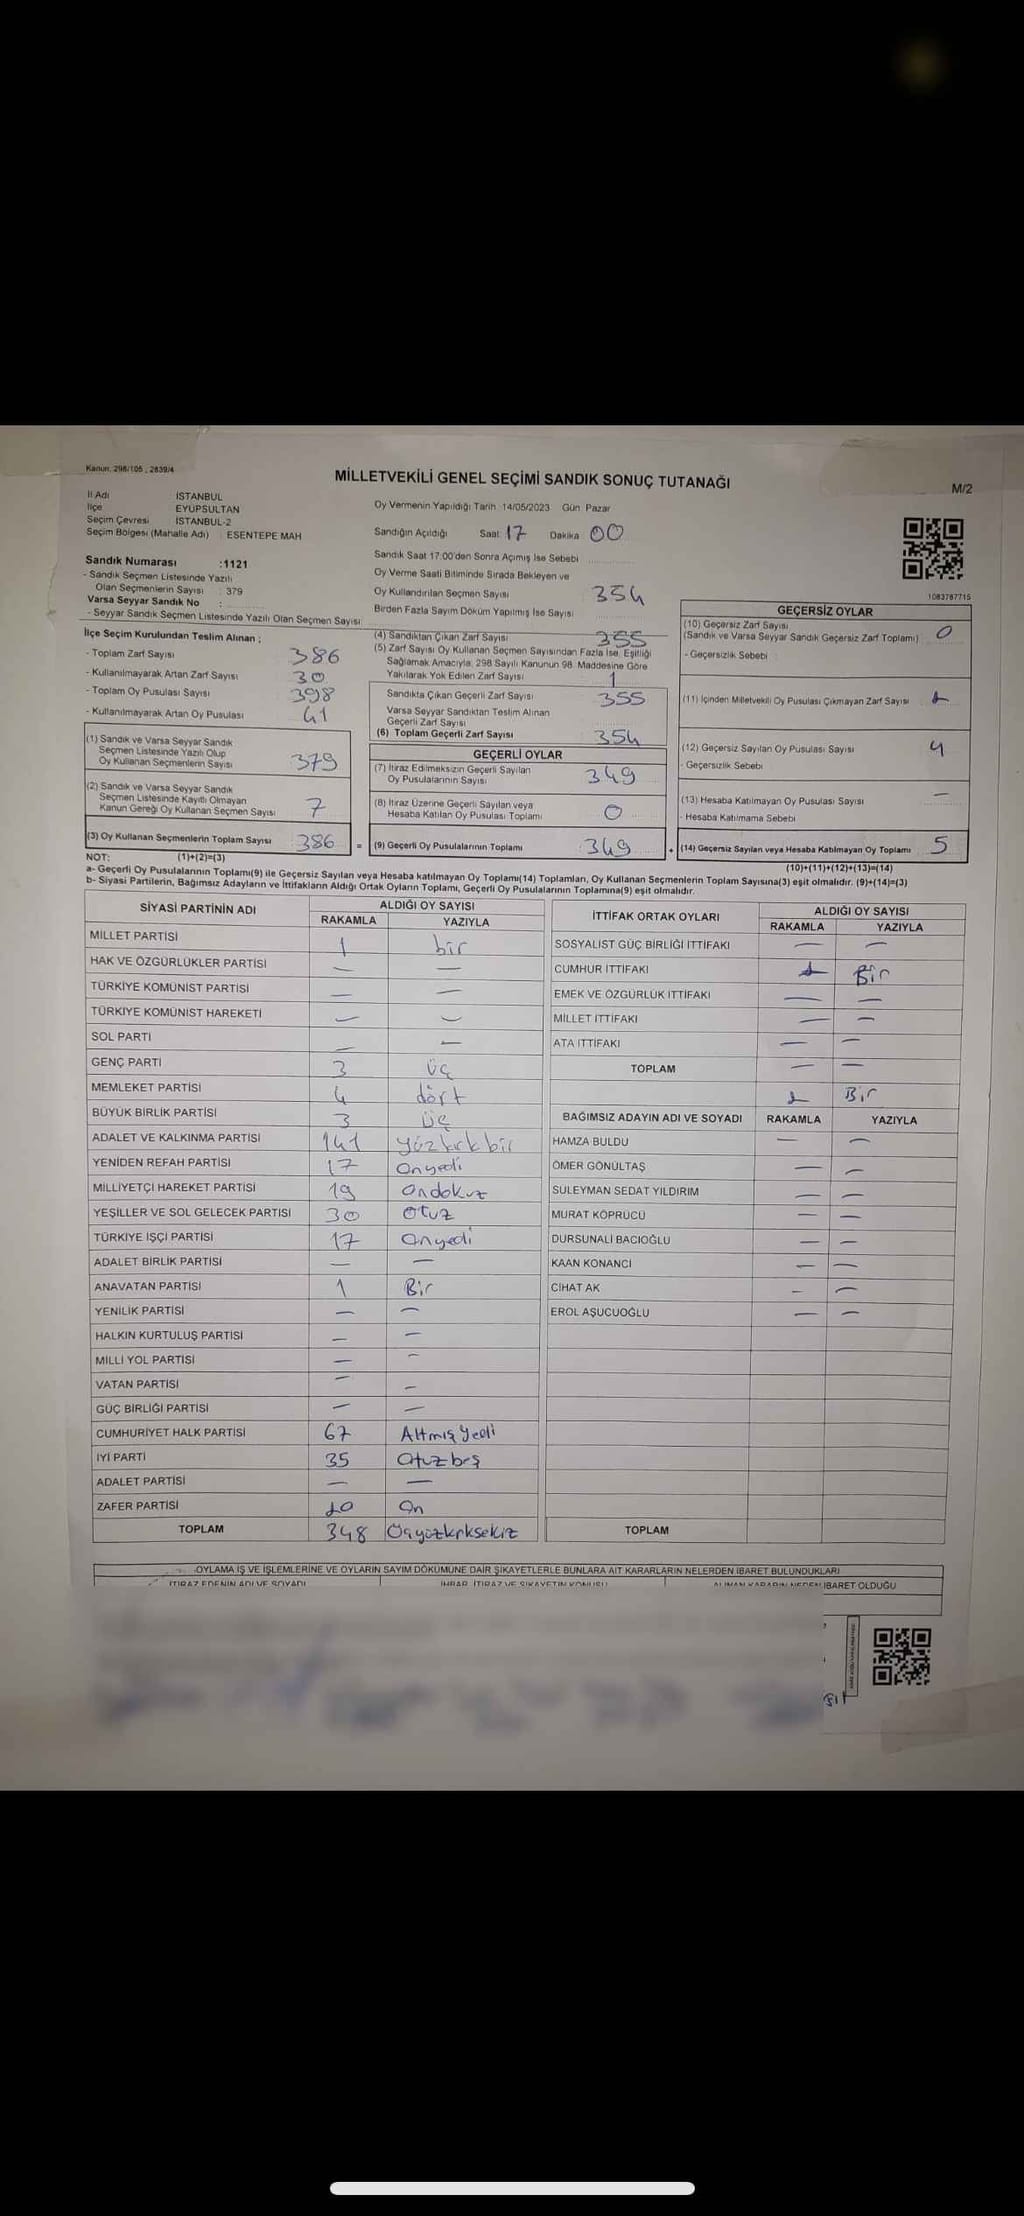 Kanun: 298/105 , 2839/4
MİLLETVEKİLİ GENEL SEÇİMİ SANDIK SONUÇ TUTANAĞI
M/2
İl Adı İSTANBUL
İlçe EYÜPSULTAN
Seçim Çevresi İSTANBUL-2
Seçim Bölgesi (Mahalle Adı) : ESENTEPE MAH
Oy Vermenin Yapıldığı Tarih : 14/05/2023 Gün : Pazar
Sandığın Açıldığı Saat 17 Dakika 00
Sandık Saat 17:00'den Sonra Açımış İse Sebebi
Sandık Numarası :1121
- Sandık Seçmen Listesinde Yazılı
Olan Seçmenlerin Sayısı : 379
Varsa Seyyar Sandık No :
- Seyyar Sandık Seçmen Listesinde Yazılı Olan Seçmen Sayısı:
Oy Verme Saati Bitiminde Sırada Bekleyen ve
Oy Kullandırılan Seçmen Sayısı 354
Birden Fazla Sayım Döküm Yapılmış İse Sayısı
1083787715
İlçe Seçim Kurulundan Teslim Alınan ;
- Toplam Zarf Sayısı 386
- Kullanılmayarak Artan Zarf Sayısı 30
- Toplam Oy Pusulası Sayısı 398
- Kullanılmayarak Artan Oy Pusulası 41
(1) Sandık ve Varsa Seyyar Sandık
Seçmen Listesinde Yazılı Olup
Oy Kullanan Seçmenlerin Sayısı 379
(2) Sandık ve Varsa Seyyar Sandık
Seçmen Listesinde Kayıtlı Olmayan
Kanun Gereği Oy Kullanan Seçmen Sayısı 7
(3) Oy Kullanan Seçmenlerin Toplam Sayısı 386 =
(4) Sandıktan Çıkan Zarf Sayısı 355
(5) Zarf Sayısı Oy Kullanan Seçmen Sayısından Fazla İse, Eşitliği
Sağlamak Amacıyla, 298 Sayılı Kanunun 98. Maddesine Göre
Yakılarak Yok Edilen Zarf Sayısı 1
Sandıkta Çıkan Geçerli Zarf Sayısı 355
Varsa Seyyar Sandıktan Teslim Alınan
Geçerli Zarf Sayısı
(6) Toplam Geçerli Zarf Sayısı 354
GEÇERLİ OYLAR
(7) İtiraz Edilmeksizin Geçerli Sayılan
Oy Pusulalarının Sayısı 349
(8) İtiraz Üzerine Geçerli Sayılan veya
Hesaba Katılan Oy Pusulası Toplamı 0
(9) Geçerli Oy Pusulalarının Toplamı 349 +
GEÇERSİZ OYLAR
(10) Geçersiz Zarf Sayısı
(Sandık ve Varsa Seyyar Sandık Geçersiz Zarf Toplamı) 0
- Geçersizlik Sebebi
(11) İçinden Milletvekili Oy Pusulası Çıkmayan Zarf Sayısı 1
(12) Geçersiz Sayılan Oy Pusulası Sayısı 4
- Geçersizlik Sebebi
(13) Hesaba Katılmayan Oy Pusulası Sayısı —
- Hesaba Katılmama Sebebi
(14) Geçersiz Sayılan veya Hesaba Katılmayan Oy Toplamı 5
NOT: (1)+(2)=(3)
(10)+(11)+(12)+(13)=(14)
a- Geçerli Oy Pusulalarının Toplamı(9) ile Geçersiz Sayılan veya Hesaba katılmayan Oy Toplamı(14) Toplamları, Oy Kullanan Seçmenlerin Toplam Sayısına(3) eşit olmalıdır. (9)+(14)=(3)
b- Siyasi Partilerin, Bağımsız Adayların ve İttifakların Aldığı Ortak Oyların Toplamı, Geçerli Oy Pusulalarının Toplamına(9) eşit olmalıdır.
SİYASİ PARTİNİN ADI ALDIĞI OY SAYISI
RAKAMLA YAZIYLA
MİLLET PARTİSİ 1 bir
HAK VE ÖZGÜRLÜKLER PARTİSİ — —
TÜRKİYE KOMÜNİST PARTİSİ — —
TÜRKİYE KOMÜNİST HAREKETİ — —
SOL PARTİ — —
GENÇ PARTİ 3 üç
MEMLEKET PARTİSİ 4 dört
BÜYÜK BİRLİK PARTİSİ 3 üç
ADALET VE KALKINMA PARTİSİ 141 yüzkırkbir
YENİDEN REFAH PARTİSİ 17 Onyedi
MİLLİYETÇİ HAREKET PARTİSİ 19 Ondokuz
YEŞİLLER VE SOL GELECEK PARTİSİ 30 Otuz
TÜRKİYE İŞÇİ PARTİSİ 17 Onyedi
ADALET BİRLİK PARTİSİ — —
ANAVATAN PARTİSİ 1 Bir
YENİLİK PARTİSİ — —
HALKIN KURTULUŞ PARTİSİ — —
MİLLİ YOL PARTİSİ — —
VATAN PARTİSİ — —
GÜÇ BİRLİĞİ PARTİSİ — —
CUMHURİYET HALK PARTİSİ 67 Altmış Yedi
İYİ PARTİ 35 Otuzbeş
ADALET PARTİSİ — —
ZAFER PARTİSİ 10 On
TOPLAM 348 Üçyüzkırksekiz
İTTİFAK ORTAK OYLARI ALDIĞI OY SAYISI
RAKAMLA YAZIYLA
SOSYALİST GÜÇ BİRLİĞİ İTTİFAKI — —
CUMHUR İTTİFAKI 1 Bir
EMEK VE ÖZGÜRLÜK İTTİFAKI — —
MİLLET İTTİFAKI — —
ATA İTTİFAKI — —
TOPLAM — —
1 Bir
BAĞIMSIZ ADAYIN ADI VE SOYADI RAKAMLA YAZIYLA
HAMZA BULDU — —
ÖMER GÖNÜLTAŞ — —
SÜLEYMAN SEDAT YILDIRIM — —
MURAT KÖPRÜCÜ — —
DURSUNALİ BACIOĞLU — —
KAAN KONANCI — —
CİHAT AK — —
EROL AŞUCUOĞLU — —
TOPLAM
OYLAMA İŞ VE İŞLEMLERİNE VE OYLARIN SAYIM DÖKÜMÜNE DAİR ŞİKAYETLERLE BUNLARA AİT KARARLARIN NELERDEN İBARET BULUNDUKLARI
İTİRAZ EDENİN ADI VE SOYADI İHBAR, İTİRAZ VE ŞİKAYETİN KONUSU ALINAN KARARIN NEDEN İBARET OLDUĞU